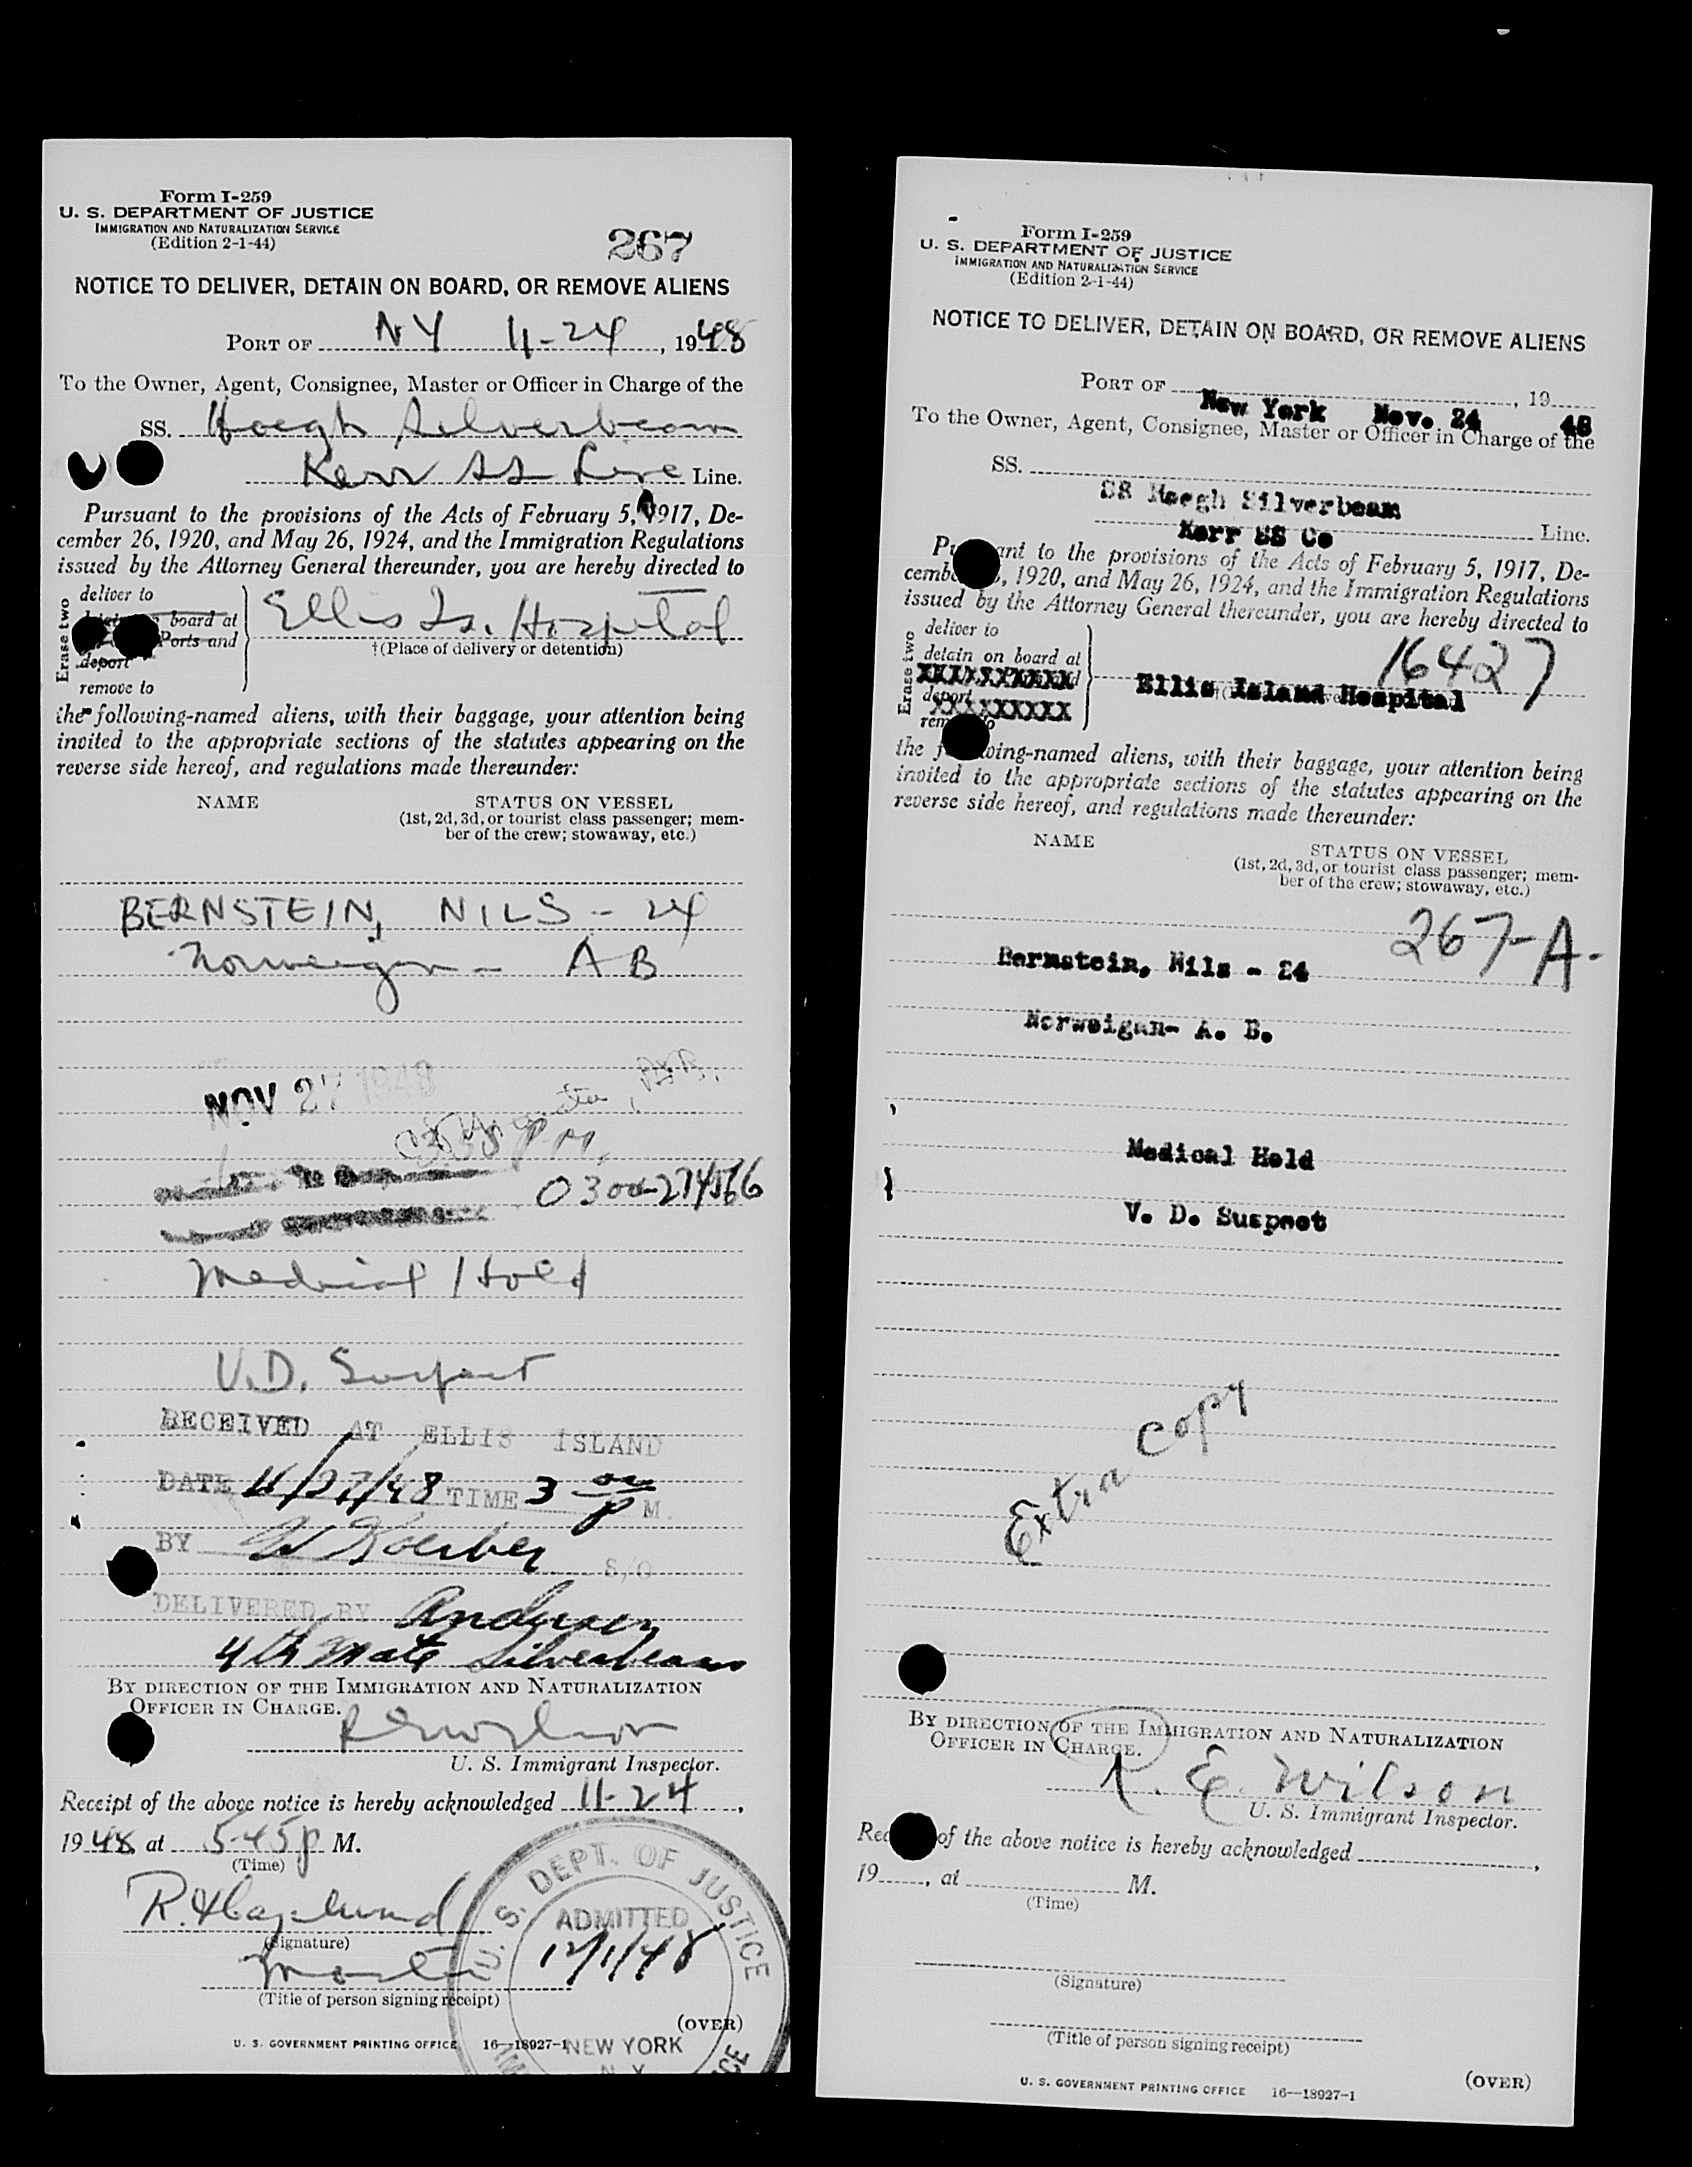 Form I-259
U. S. DEPARTMENT OF JUSTICE
IMMIGRATION AND NATURALIZATION SERVICE
(Edition 2-1-44)
267
NOTICE TO DELIVER, DETAIN ON BOARD, OR REMOVE ALIENS
PORT OF NY 11-24, 1948
To the Owner, Agent, Consignee, Master or Officer in Charge of the
SS. Hoegh Silverbeam
Kerr SS Line Line.
Pursuant to the provisions of the Acts of February 5, 1917, De-
cember 26, 1920, and May 26, 1924, and the Immigration Regulations
issued by the Attorney General thereunder, you are hereby directed to
Erase two
deliver to
board at
Ports and
deport
remove to
Ellis Is. Hospital
†(Place of delivery or detention)
the following-named aliens, with their baggage, your attention being
invited to the appropriate sections of the statutes appearing on the
reverse side hereof, and regulations made thereunder:
NAME
STATUS ON VESSEL
(1st, 2d, 3d, or tourist class passenger; mem-
ber of the crew; stowaway, etc.)
BERNSTEIN, NILS - 24
Norweigan - AB
NOV 27 1948
0300-274566
Medical Hold
V.D. Suspect
RECEIVED AT ELLIS ISLAND
DATE 11/27/48 TIME 3 00 P M.
BY W Koerber S/O
DELIVERED BY Andersen
4th Mate Silverbeam
BY DIRECTION OF THE IMMIGRATION AND NATURALIZATION
OFFICER IN CHARGE.
R E Wilson
U. S. Immigrant Inspector.
Receipt of the above notice is hereby acknowledged 11-24,
1948 at 5-45 p M.
(Time)
R. Haglund
(Signature)
Master
(Title of person signing receipt)
U. S. DEPT. OF JUSTICE
ADMITTED
12/1/48
NEW YORK
N. Y.
(OVER)
U. S. GOVERNMENT PRINTING OFFICE 16—18927-1
Form I-259
U. S. DEPARTMENT OF JUSTICE
IMMIGRATION AND NATURALIZATION SERVICE
(Edition 2-1-44)
NOTICE TO DELIVER, DETAIN ON BOARD, OR REMOVE ALIENS
PORT OF , 19
New York Nov. 24 48
To the Owner, Agent, Consignee, Master or Officer in Charge of the
SS.
SS Hoegh Silverbeam
Line.
Kerr SS Co
Pursuant to the provisions of the Acts of February 5, 1917, De-
cember 26, 1920, and May 26, 1924, and the Immigration Regulations
issued by the Attorney General thereunder, you are hereby directed to
Erase two
deliver to
detain on board at
deport
remove to
16427
Ellis Island Hospital
the following-named aliens, with their baggage, your attention being
invited to the appropriate sections of the statutes appearing on the
reverse side hereof, and regulations made thereunder:
NAME
STATUS ON VESSEL
(1st, 2d, 3d, or tourist class passenger; mem-
ber of the crew; stowaway, etc.)
267-A.
Bernstein, Nils - 24
Norweigan- A. B.
Medical Hold
V. D. Suspect
Extra copy
BY DIRECTION OF THE IMMIGRATION AND NATURALIZATION
OFFICER IN CHARGE.
R. E. Wilson
U. S. Immigrant Inspector.
Receipt of the above notice is hereby acknowledged ,
19 , at M.
(Time)
(Signature)
(Title of person signing receipt)
(OVER)
U. S. GOVERNMENT PRINTING OFFICE 16—18927-1